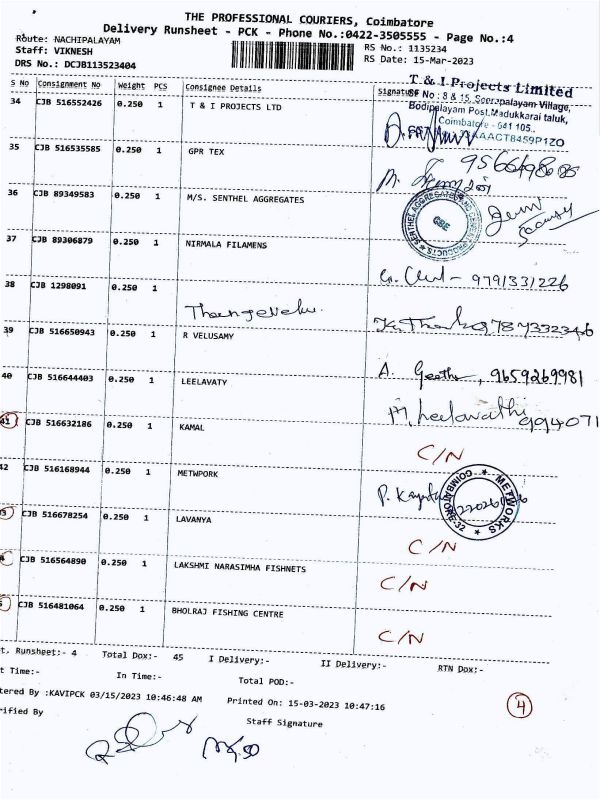 THE PROFESSIONAL COURIERS, Coimbatore
Delivery Runsheet - PCK - Phone No.:0422-3505555 - Page No.:4
Route: NACHIPALAYAM
Staff: VIKNESH
DRS No.: DCJB113523404
RS No.: 1135234
RS Date: 15-Mar-2023
S No Consignment No Weight PCS Consignee Details Signature
T & I Projects Limited
SF No : 8 & 15, Seerapalayam Village,
Bodipalayam Post, Madukkarai taluk,
Coimbatore - 641 105.
34 CJB 516552426 0.250 1 T & I PROJECTS LTD
35 CJB 516535585 0.250 1 GPR TEX
36 CJB 89349583 0.250 1 M/S. SENTHEL AGGREGATES
37 CJB 89306879 0.250 1 NIRMALA FILAMENS 9791331226
38 CJB 1298091 0.250 1 Thangavelu
39 CJB 516650943 0.250 1 R VELUSAMY A. Geetha, 9659269981
40 CJB 516644403 0.250 1 LEELAVATY M. Leelavathi 994071
41 CJB 516632186 0.250 1 KAMAL C/N
42 CJB 516168944 0.250 1 METWPORK
METWORKS
3 CJB 516678254 0.250 1 LAVANYA C/N
4 CJB 516564890 0.250 1 LAKSHMI NARASIMHA FISHNETS C/N
5 CJB 516481064 0.250 1 BHOLRAJ FISHING CENTRE C/N
t. Runsheet:- 4 Total Dox:- 45 I Delivery:- II Delivery:- RTN Dox:-
t Time:- In Time:- Total POD:-
tered By :KAVIPCK 03/15/2023 10:46:48 AM Printed On: 15-03-2023 10:47:16
4
rified By Staff Signature